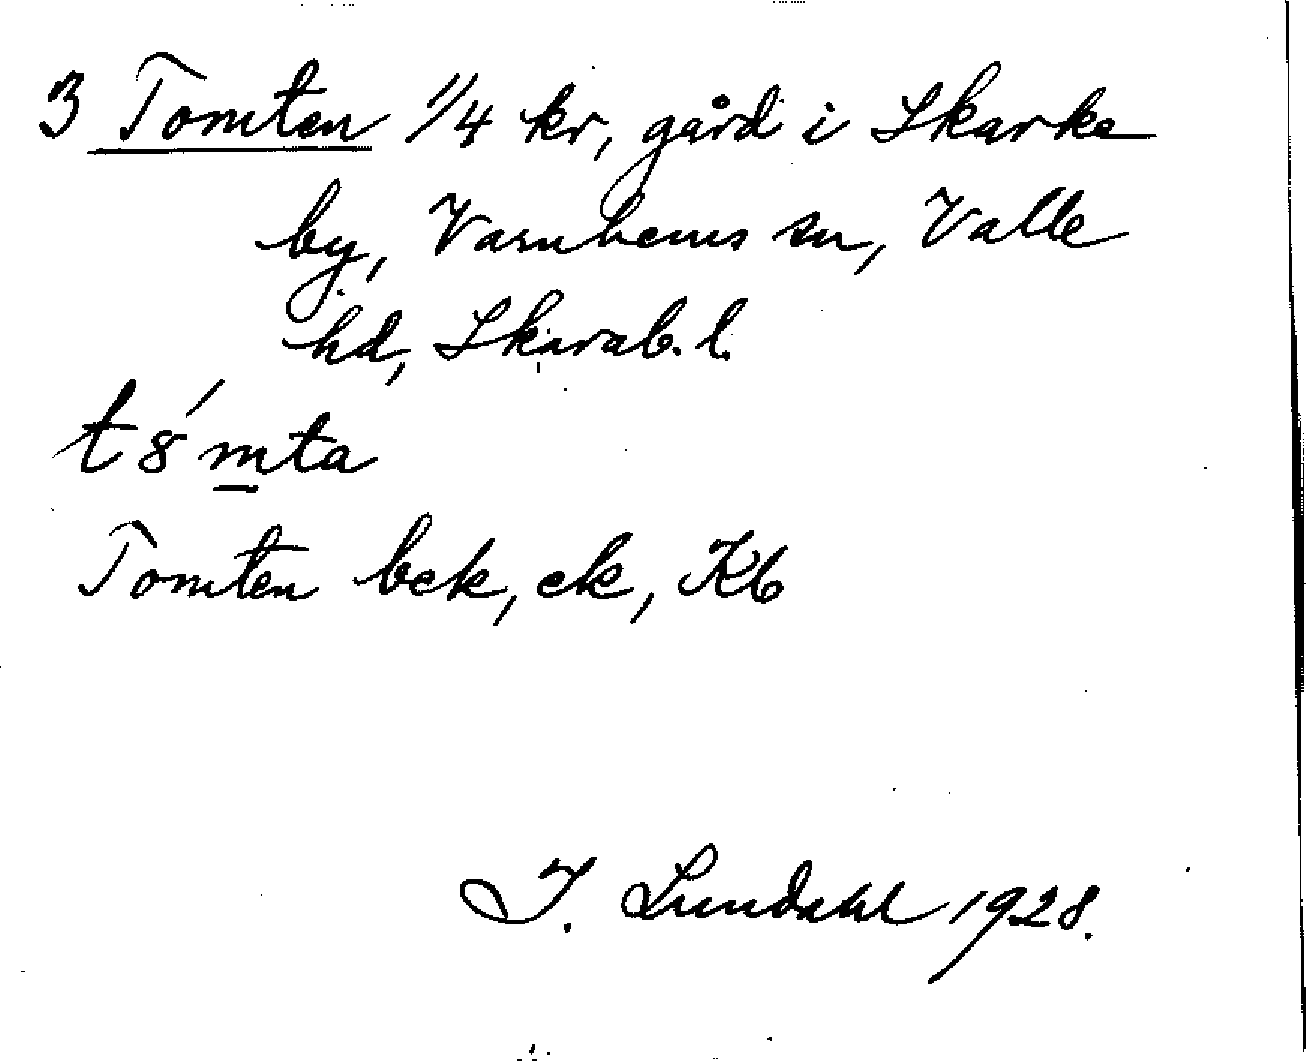 3 Tomten 1/4 kr, gård i Skarke
by, Varnhems sn, Valle
hd, Skarab. l.
t 8́ m̲ta
Tomten bek, ek, Kb
I. Lundahl 1928.